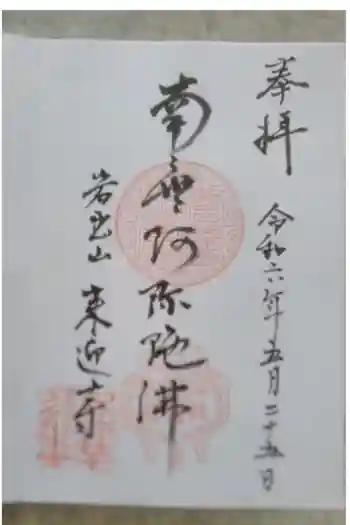 奉拝
令和六年五月二十五日
南無阿弥陀佛
岩出山 来迎寺